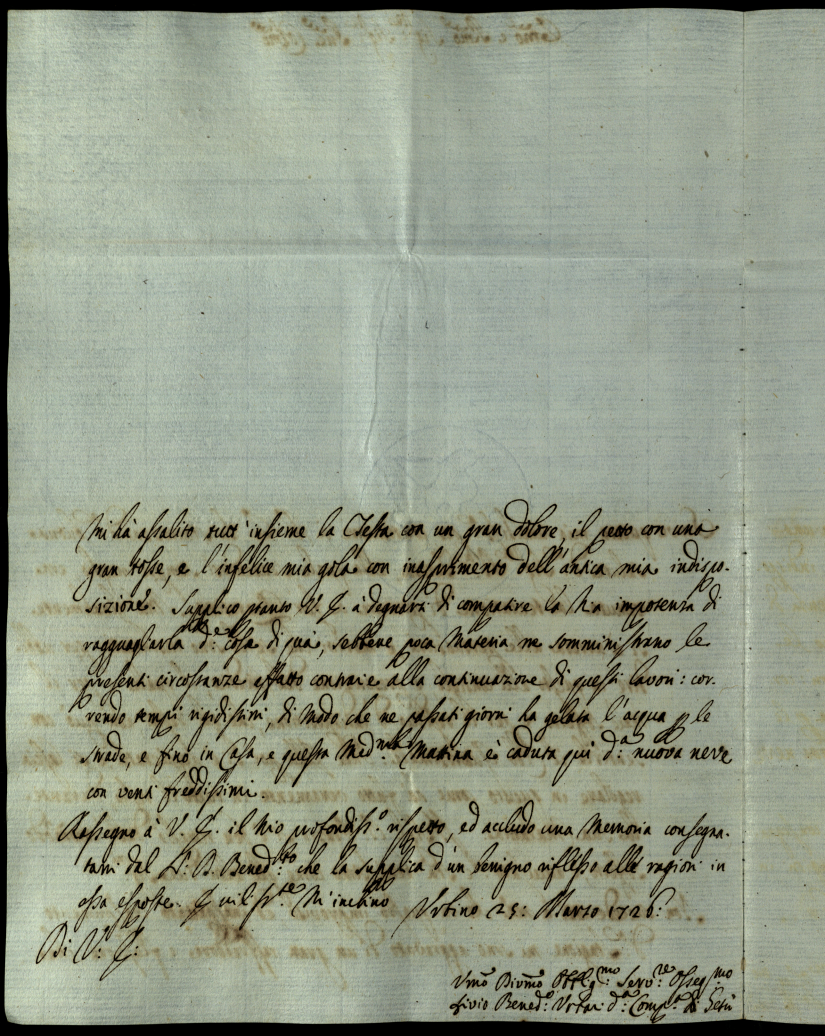 Mi hà assalito tutt'insieme la Testa con un gran dolore, il petto con una
gran tosse, e l'infelice mia gola con inasprimento dell'antica mia indispo-
sizione. Supplico pertanto V. E. à degnarsi di compatire la mia impotenza di
ragguagliarla d.e cose di quà, sebbene poca materia ne somministrano le
presenti circostanze affatto contrarie alla continuazione di questi lavori: cor-
rendo tempi rigidissimi, di modo che ne passati giorni ha gelata l'acqua p le
strade, e fino in Casa, e questa med.ma Mattina è caduta quì d.a nuova neve
con venti freddissimi.
Rassegno à V. E. il mio profondiss.o rispetto, ed accludo una Memoria consegna-
tami dal S.r D. Bened.tto che la supplica d'un benigno riflesso alle ragioni in
essa esposte. E m'inchino Urbino 25: Marzo 1726:
Di V: E:
Umo Divmo Obblig.mo Serv.re Osseq.mo
Livio Bened.o d.a Comp.a di Gesù